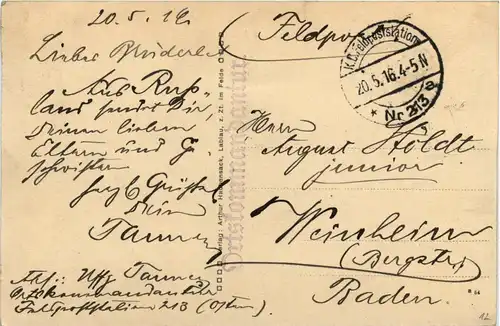 20. 5. 16
Lieber Brüderle
Aus Ruß-
land sendet Dir,
Deinen lieben
Eltern und Ge
schwistern
herzl. Grüße
Dein
Tanner
Abs: Uffz. Tanner
Ortskommandantur
Feldpoststation 213 (Osten)
Verlag: Arthur Lablau, z. Zt. im Felde
Ortskommandantur
Feldpost
K.D. Feldpoststation
20.5.16.4-5N
* Nr 213
Herrn
August Höldt
junior
Weinheim
(Bergstr)
Baden.